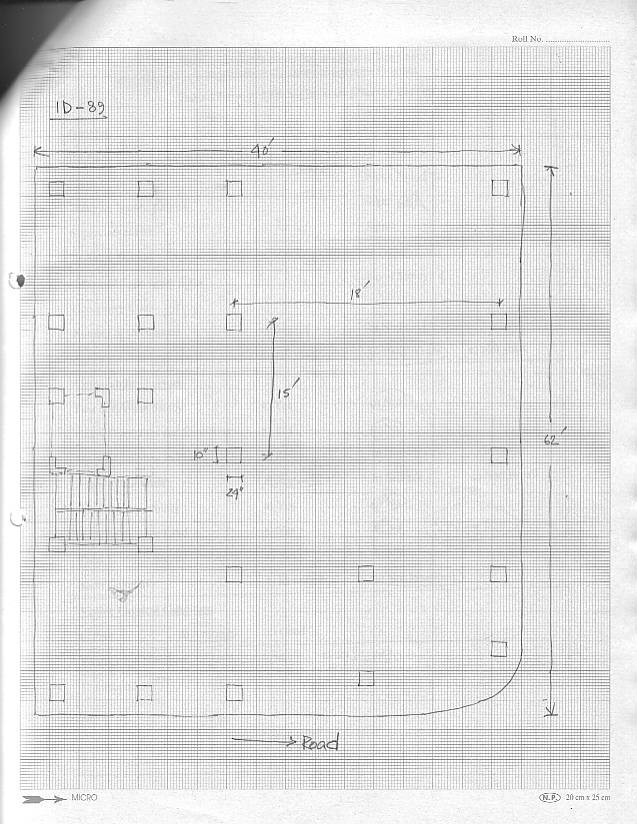 Roll No. ..............................
1D-89
40'
18'
15'
62'
10"
24"
Road
MICRO
N.P. 20 cm x 25 cm